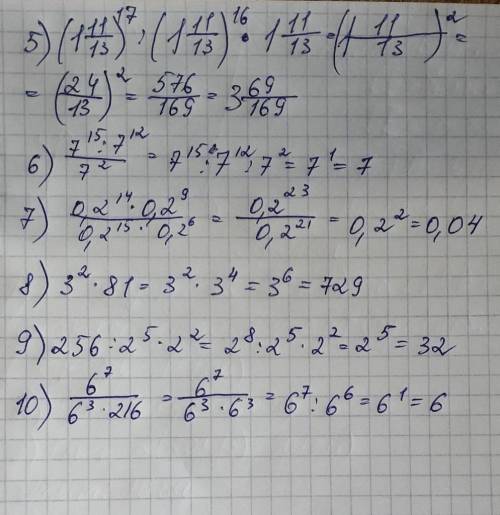 5) (1 11/13)^17 : (1 11/13)^16 · 1 11/13 = (1 11/13)^2 =
= (24/13)^2 = 576/169 = 3 69/169
6) 7^15 : 7^12 / 7^2 = 7^15 : 7^12 : 7^2 = 7^1 = 7
7) 0,2^14 · 0,2^9 / 0,2^15 · 0,2^6 = 0,2^23 / 0,2^21 = 0,2^2 = 0,04
8) 3^2 · 81 = 3^2 · 3^4 = 3^6 = 729
9) 256 : 2^5 · 2^2 = 2^8 : 2^5 · 2^2 = 2^5 = 32
10) 6^7 / 6^3 · 216 = 6^7 / 6^3 · 6^3 = 6^7 : 6^6 = 6^1 = 6